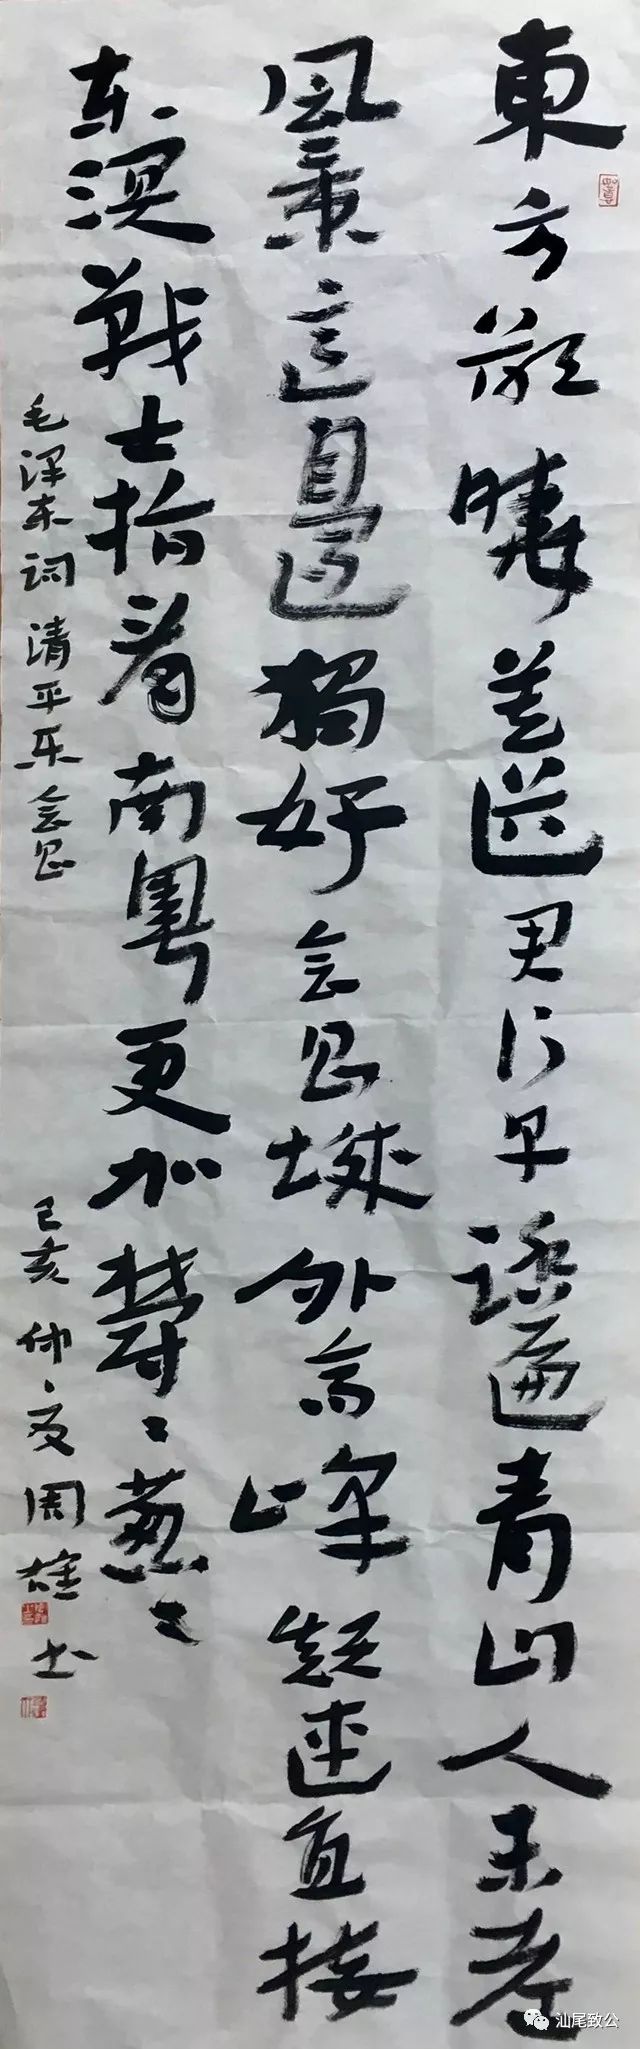 東方欲曉莫道君行早踏遍青山人未老
風景這邊獨好会昌城外高峰顛連直接
东溟戰士指看南粤更加鬱〻葱〻
毛泽东词清平乐会昌 己亥仲夏周雄书
汕尾致公